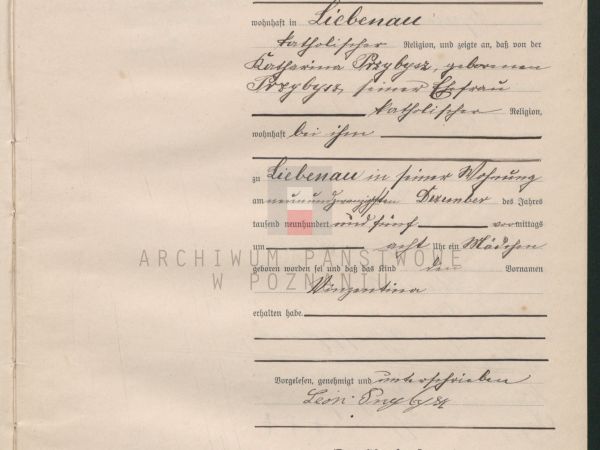 wohnhaft in Liebenau
katholischer Religion, und zeigte an, daß von der
Katharina Przybysz, geborenen
Przybysz, seiner Ehefrau
katholischer Religion,
wohnhaft bei ihm
zu Liebenau in seiner Wohnung
am neunundzwanzigsten Dezember des Jahres
tausend neunhundert und fünf vormittags
um acht Uhr ein Mädchen
geboren worden sei und daß das Kind den Vornamen
Vinzentina
erhalten habe.
Vorgelesen, genehmigt und unterschrieben
Leon Przybysz
ARCHIWUM PAŃSTWOWE
W POZNANIU